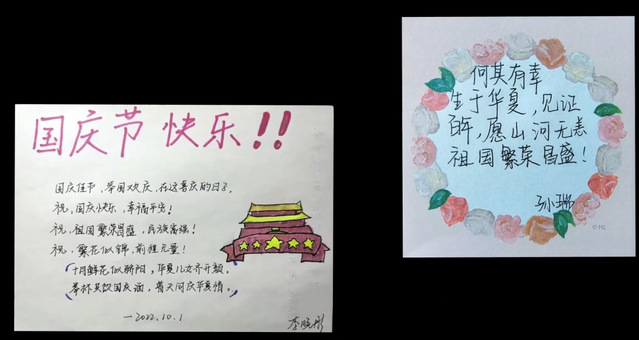 国庆节 快乐!!
国庆佳节，举国欢庆，在这喜庆的日子，
祝，国庆快乐，幸福平安！
祝，祖国繁荣昌盛，民族富强！
祝，繁花似锦，前程无量！
十月鲜花似骄阳，华夏儿女齐开颜。
举杯共饮国庆酒，普天同庆华夏情。
—2022.10.1
李晓彤
何其有幸
生于华夏，见证
百年，愿山河无恙
祖国繁荣昌盛！